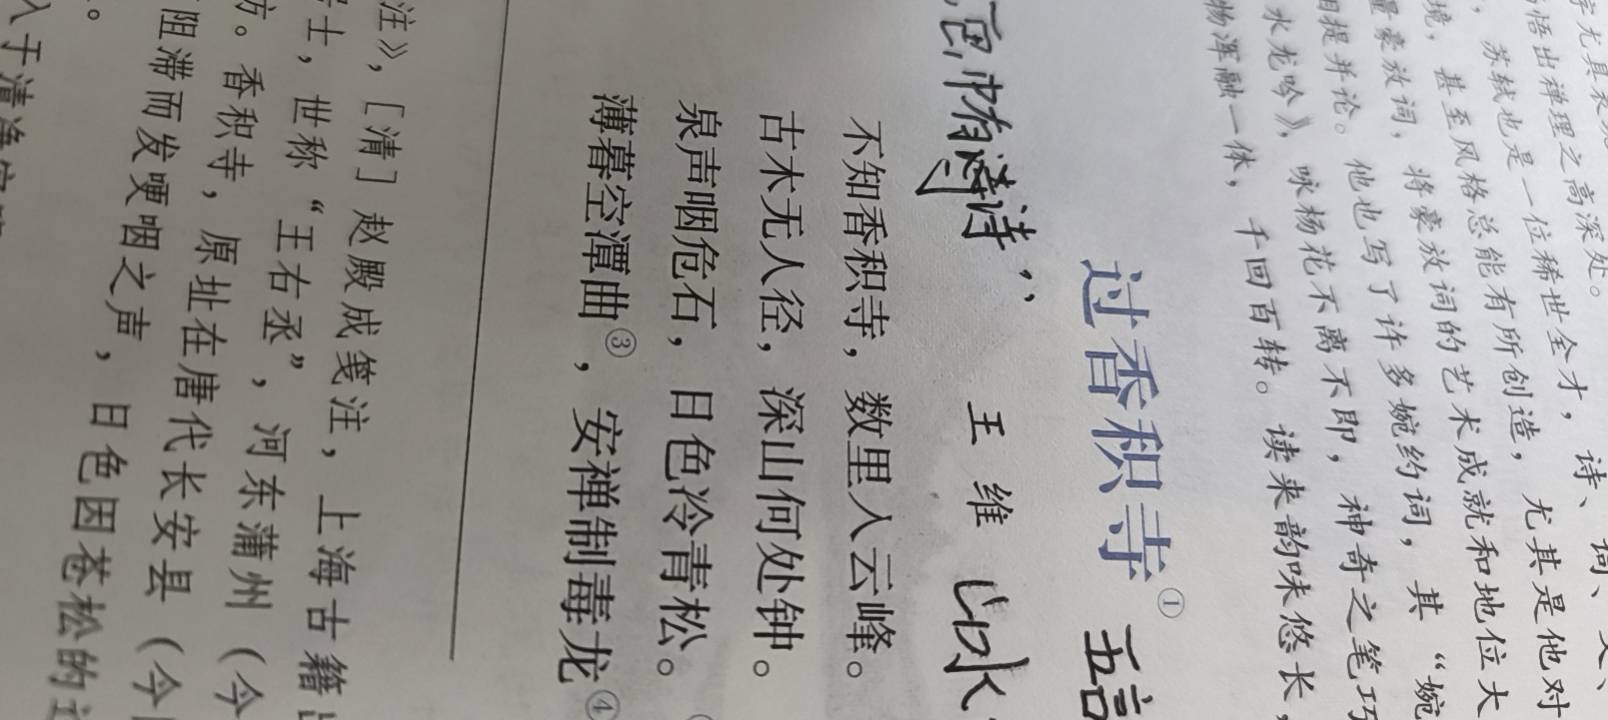 字尤具
悟出禅理之高深处。
，苏轼也是一位稀世全才，诗、词、文、
境，甚至风格总能有所创造，尤其是他对
量豪放词，将豪放词的艺术成就和地位大
相提并论。他也写了许多婉约词，其“婉
水龙吟》，咏杨花不离不即，神奇之笔巧
物浑融一体，千回百转。读来韵味悠长，
过香积寺① 五言
诗” 王维 山水
不知香积寺，数里入云峰。
古木无人径，深山何处钟。
泉声咽危石，日色冷青松。
薄暮空潭曲③，安禅制毒龙④
注》，［清］赵殿成笺注，上海古籍出
士，世称“王右丞”，河东蒲州（今
方。香积寺，原址在唐代长安县（今
阻滞而发哽咽之声，日色因苍松的
。
入于清净